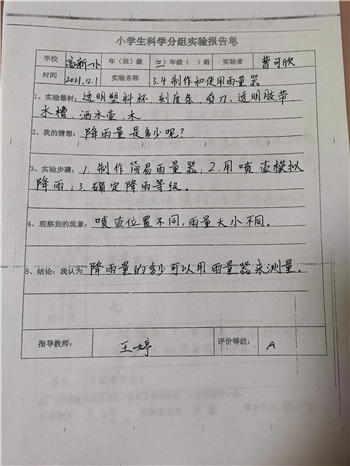 小学生科学分组实验报告单
学校 高新一小 年（班）级 （三）年级（ ）班 实验者 曹可欣
时间 2021.12.1 实验名称 3.4制作和使用雨量器
1、实验器材：透明塑料杯、刻度条、剪刀、透明胶带、
水槽、洒水壶、水
2、我的猜想：降雨量是多少呢？
3、实验步骤：1.制作简易雨量器；2.用喷壶模拟
降雨；3.确定降雨等级。
4、观察到的现象：喷壶位置不同，雨量大小不同。
5、结论：我认为 降雨量的多少可以用雨量器来测量。
指导教师： 王婷 评价等级： A